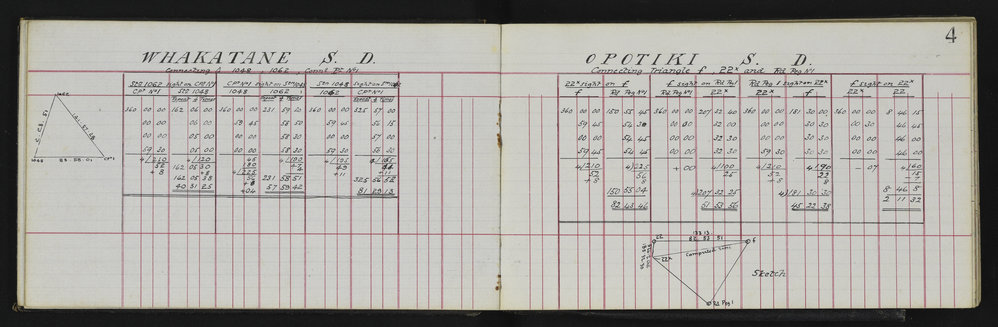 4
WHAKATANE S. D.
Connecting △ 1048, 1062, Connt Pt No1
Stn 1062 sight on CPt No1 CPt No1 sight on Stn 1062 Stn 1048 sight on Stn 1062
CPt No1 Stn 1048 1048 1062 1062 CPt No1
360 00 00 162 06 00 360 00 00 231 59 30 360 00 00 325 57 00
00 00 06 00 59 45 58 50 59 45 56 15
00 00 05 00 00 00 58 30 00 00 57 00
59 30 05 00 00 00 58 30 59 30 56 30
4/210 4/120 45 4/100 4/105 4/105
+8 162 05 30 4/225 +11 +11
162 05 38 231 58 51 325 56 52
40 31 25 +04 57 59 42 81 29 13
1062
1048
CPt1
OPOTIKI S. D.
Connecting Triangle f, 22x and Rd Peg No1
22x sight on f f sight on Rd Peg1 Rd Peg 1 sight on 22x f sight on 22x
f Rd Peg No1 Rd Peg No1 22x 22x f 22x 22
360 00 00 150 55 45 360 00 00 207 32 40 360 00 00 181 30 00 360 00 00 8 46 15
59 45 54 30 00 00 32 00 00 00 30 30 00 30 46 45
00 00 54 45 00 00 32 00 00 00 30 30 00 30 46 45
59 45 54 45 00 00 32 30 59 30 30 30 00 00 46 00
4/210 4/225 +00 4/100 4/210 4/90 - 07 4/160
52 56 25 52 -15
+8 +8 -7
150 55 04 207 32 25 181 30 30 8 46 8
82 43 46 51 53 56 45 22 38 2 11 32
22
22x
f
Computed Line
Rd Peg 1
Sketch